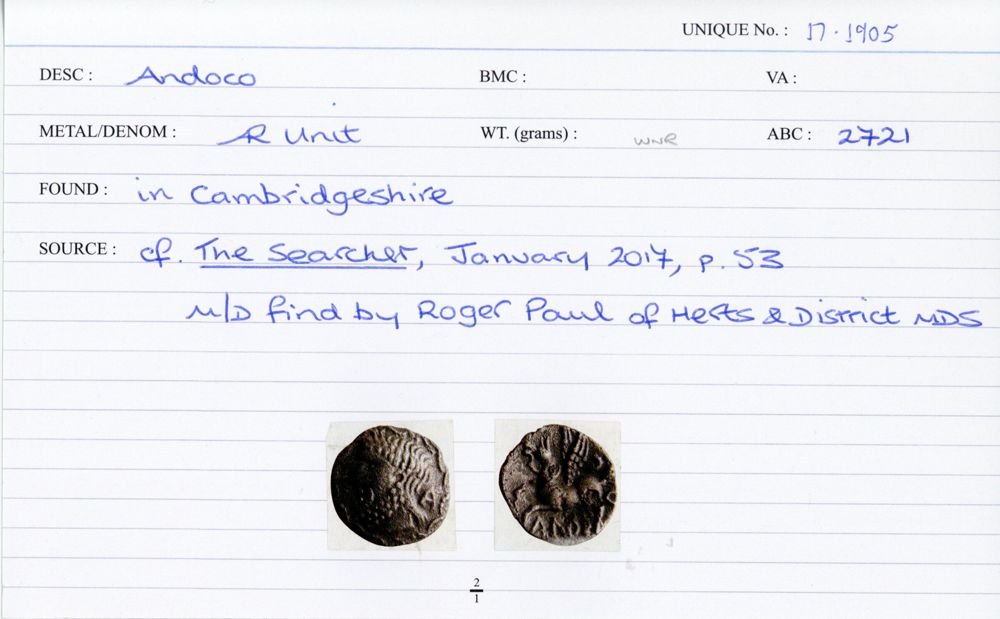 UNIQUE No. : 17.1905
DESC : Andoco BMC : VA :
METAL/DENOM : AR Unit WT. (grams) : WNR ABC : 2721
FOUND : in Cambridgeshire
SOURCE : cf. The Searcher, January 2017, p. 53
M/D find by Roger Paul of Herts & District MDS
ANDO
2
1